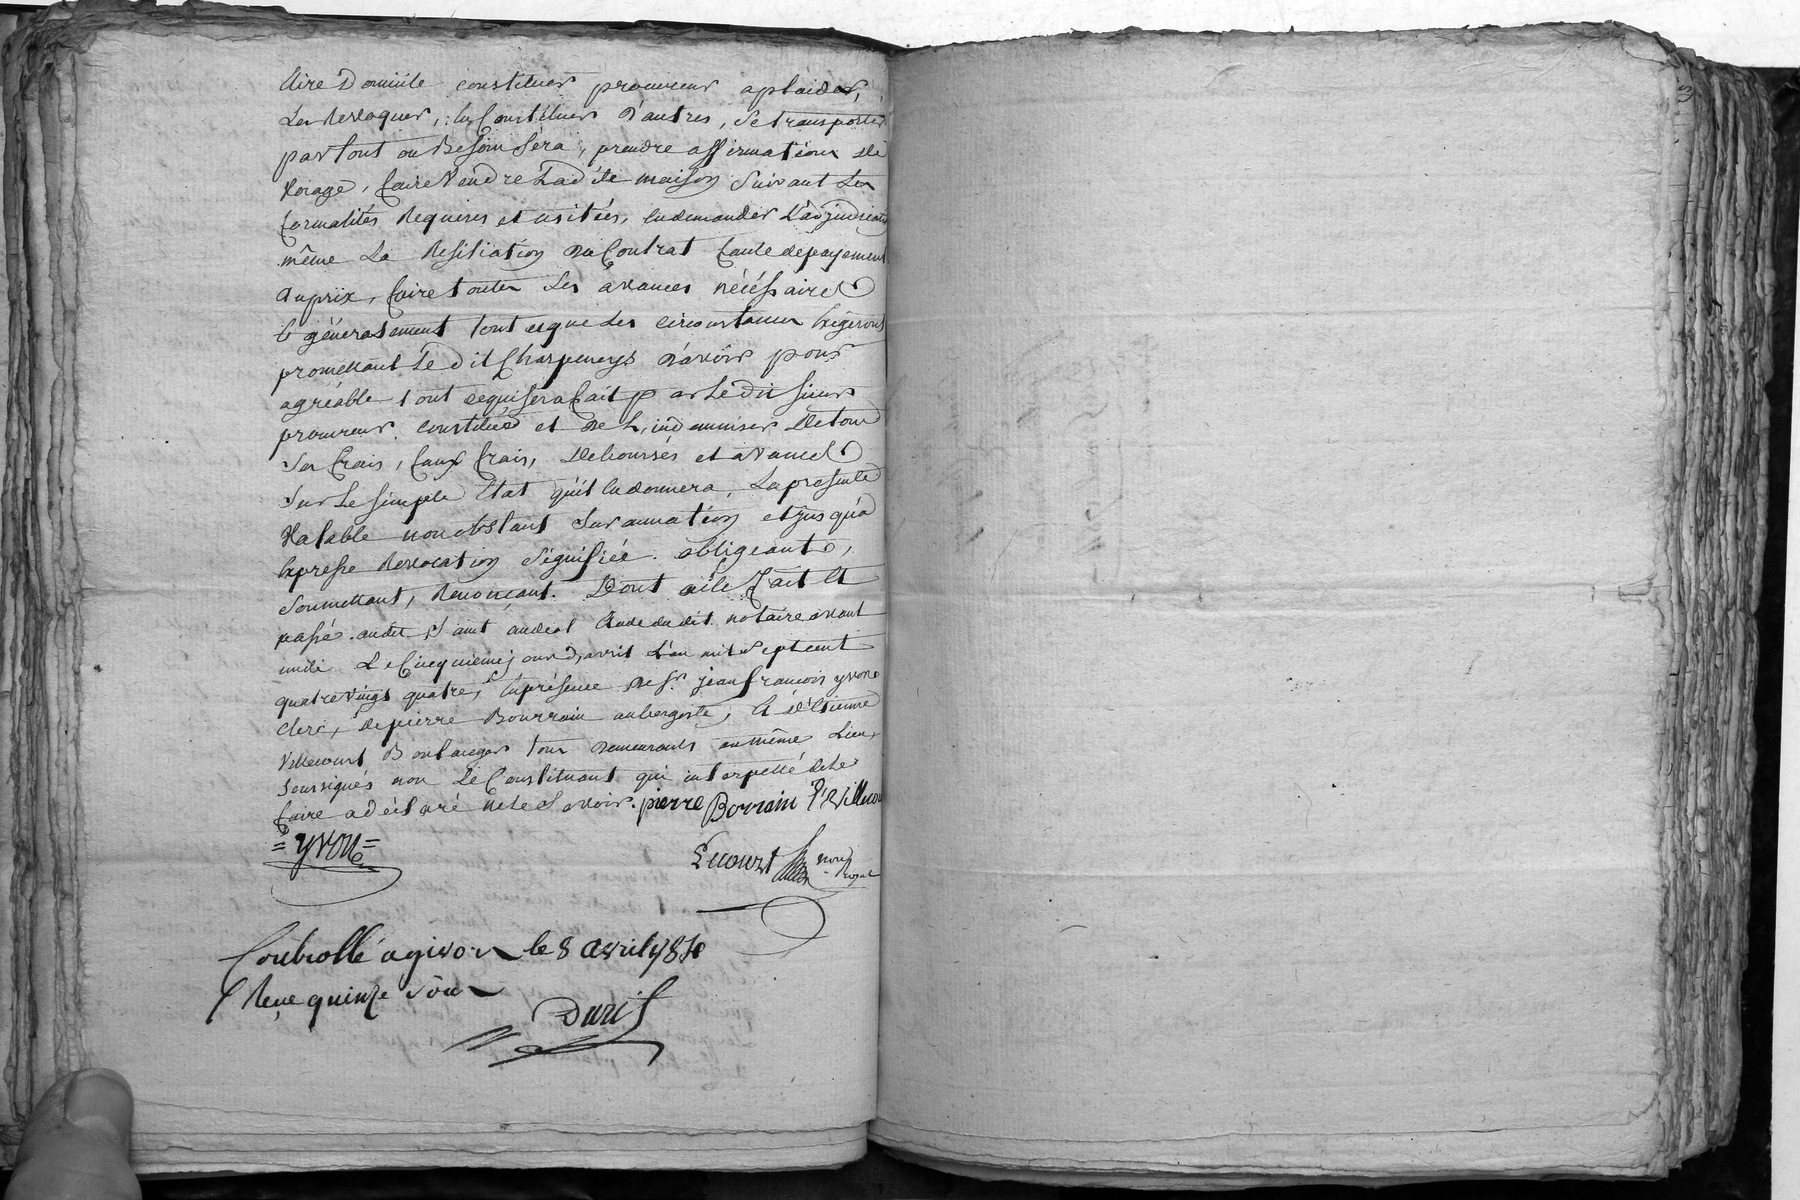 Elire Domicile constituer procureur a plaider,
Les Revoquer, En Constituer D'autres, se transporter
partout ou Besoin sera, prendre affirmation De
Voiage, faire Vendre Ladite maison suivant Les
formalités Requises et usitées, En demander L'adjudication
même La Resiliation Du Contrat faute de payement
Du prix, faire toutes Les avances nécéssaires
Et généralement tout ce que Les circonstances Exigeront
promettant Le Dit Charpeneys D'avoir pour
agréable tout ce qui sera fait par Le Dit sieur
procureur constitué et De L'indemniser De tous
Ses frais, faux frais, Deboursés et avances
Sur Le simple Etat qu'il En donnera, La présente
Valable nonobstant Surannation et jusqu'a
Expresse Revocation Signifiée. obligeant,
Soumettant, Renonçant. Dont acte fait Et
passé audit Saint andeol Etude dudit notaire avant
midi Le Cinquieme jour D'avril L'an mil Sept cent
quatre vingt quatre, En présence De Sr. jean francois yvon
Clerc, De pierre Bourrain aubergiste, Et D'Etienne
Villecourt Boulanger tous Demeurants au même Lieu,
Soussignés non Le Constituant qui interpellé de le
faire a déclaré ne le Savoir. pierre Borrain E Villecou
= yvon =
Lucourt nore royal
Controllé a givors le 8 avril 1784
Reçu quinze sous
Duris